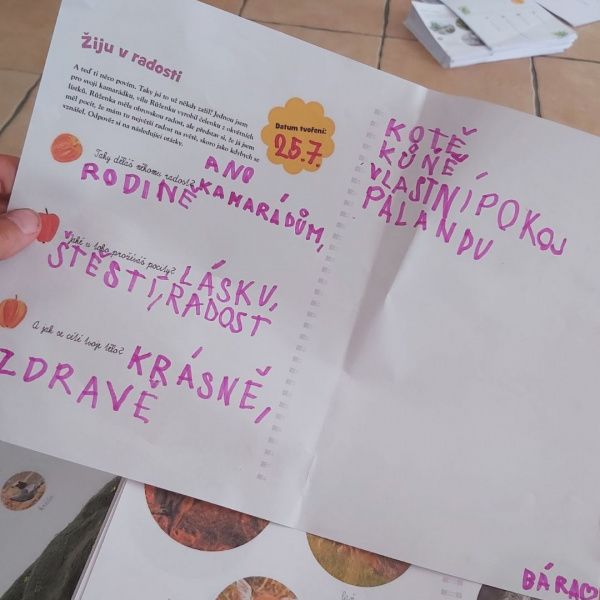 Žiju v radosti
A teď ti něco povím. Taky jsi to už někdy zažil? Jednou jsem
pro svoji kamarádku, vílu Růženku vyrobil čelenku z okvětních
lístků. Růženka měla obrovskou radost, ale představ si, že já jsem
měl pocit, že mám tu největší radost na světě, skoro jako kdybych se
vznášel. Odpověz si na následující otázky.
Datum tvoření:
25.7.
Taky děláš někomu radost? ANO
RODINĚ KAMARÁDŮM,
Jaké u toho prožíváš pocity? LÁSKU,
ŠTĚSTÍ, RADOST
A jak se cítí tvoje tělo? KRÁSNĚ,
ZDRAVĚ
KOTĚ
KŮNĚ
VLASTNÍ POKOJ
PALANDU
BÁRA♡